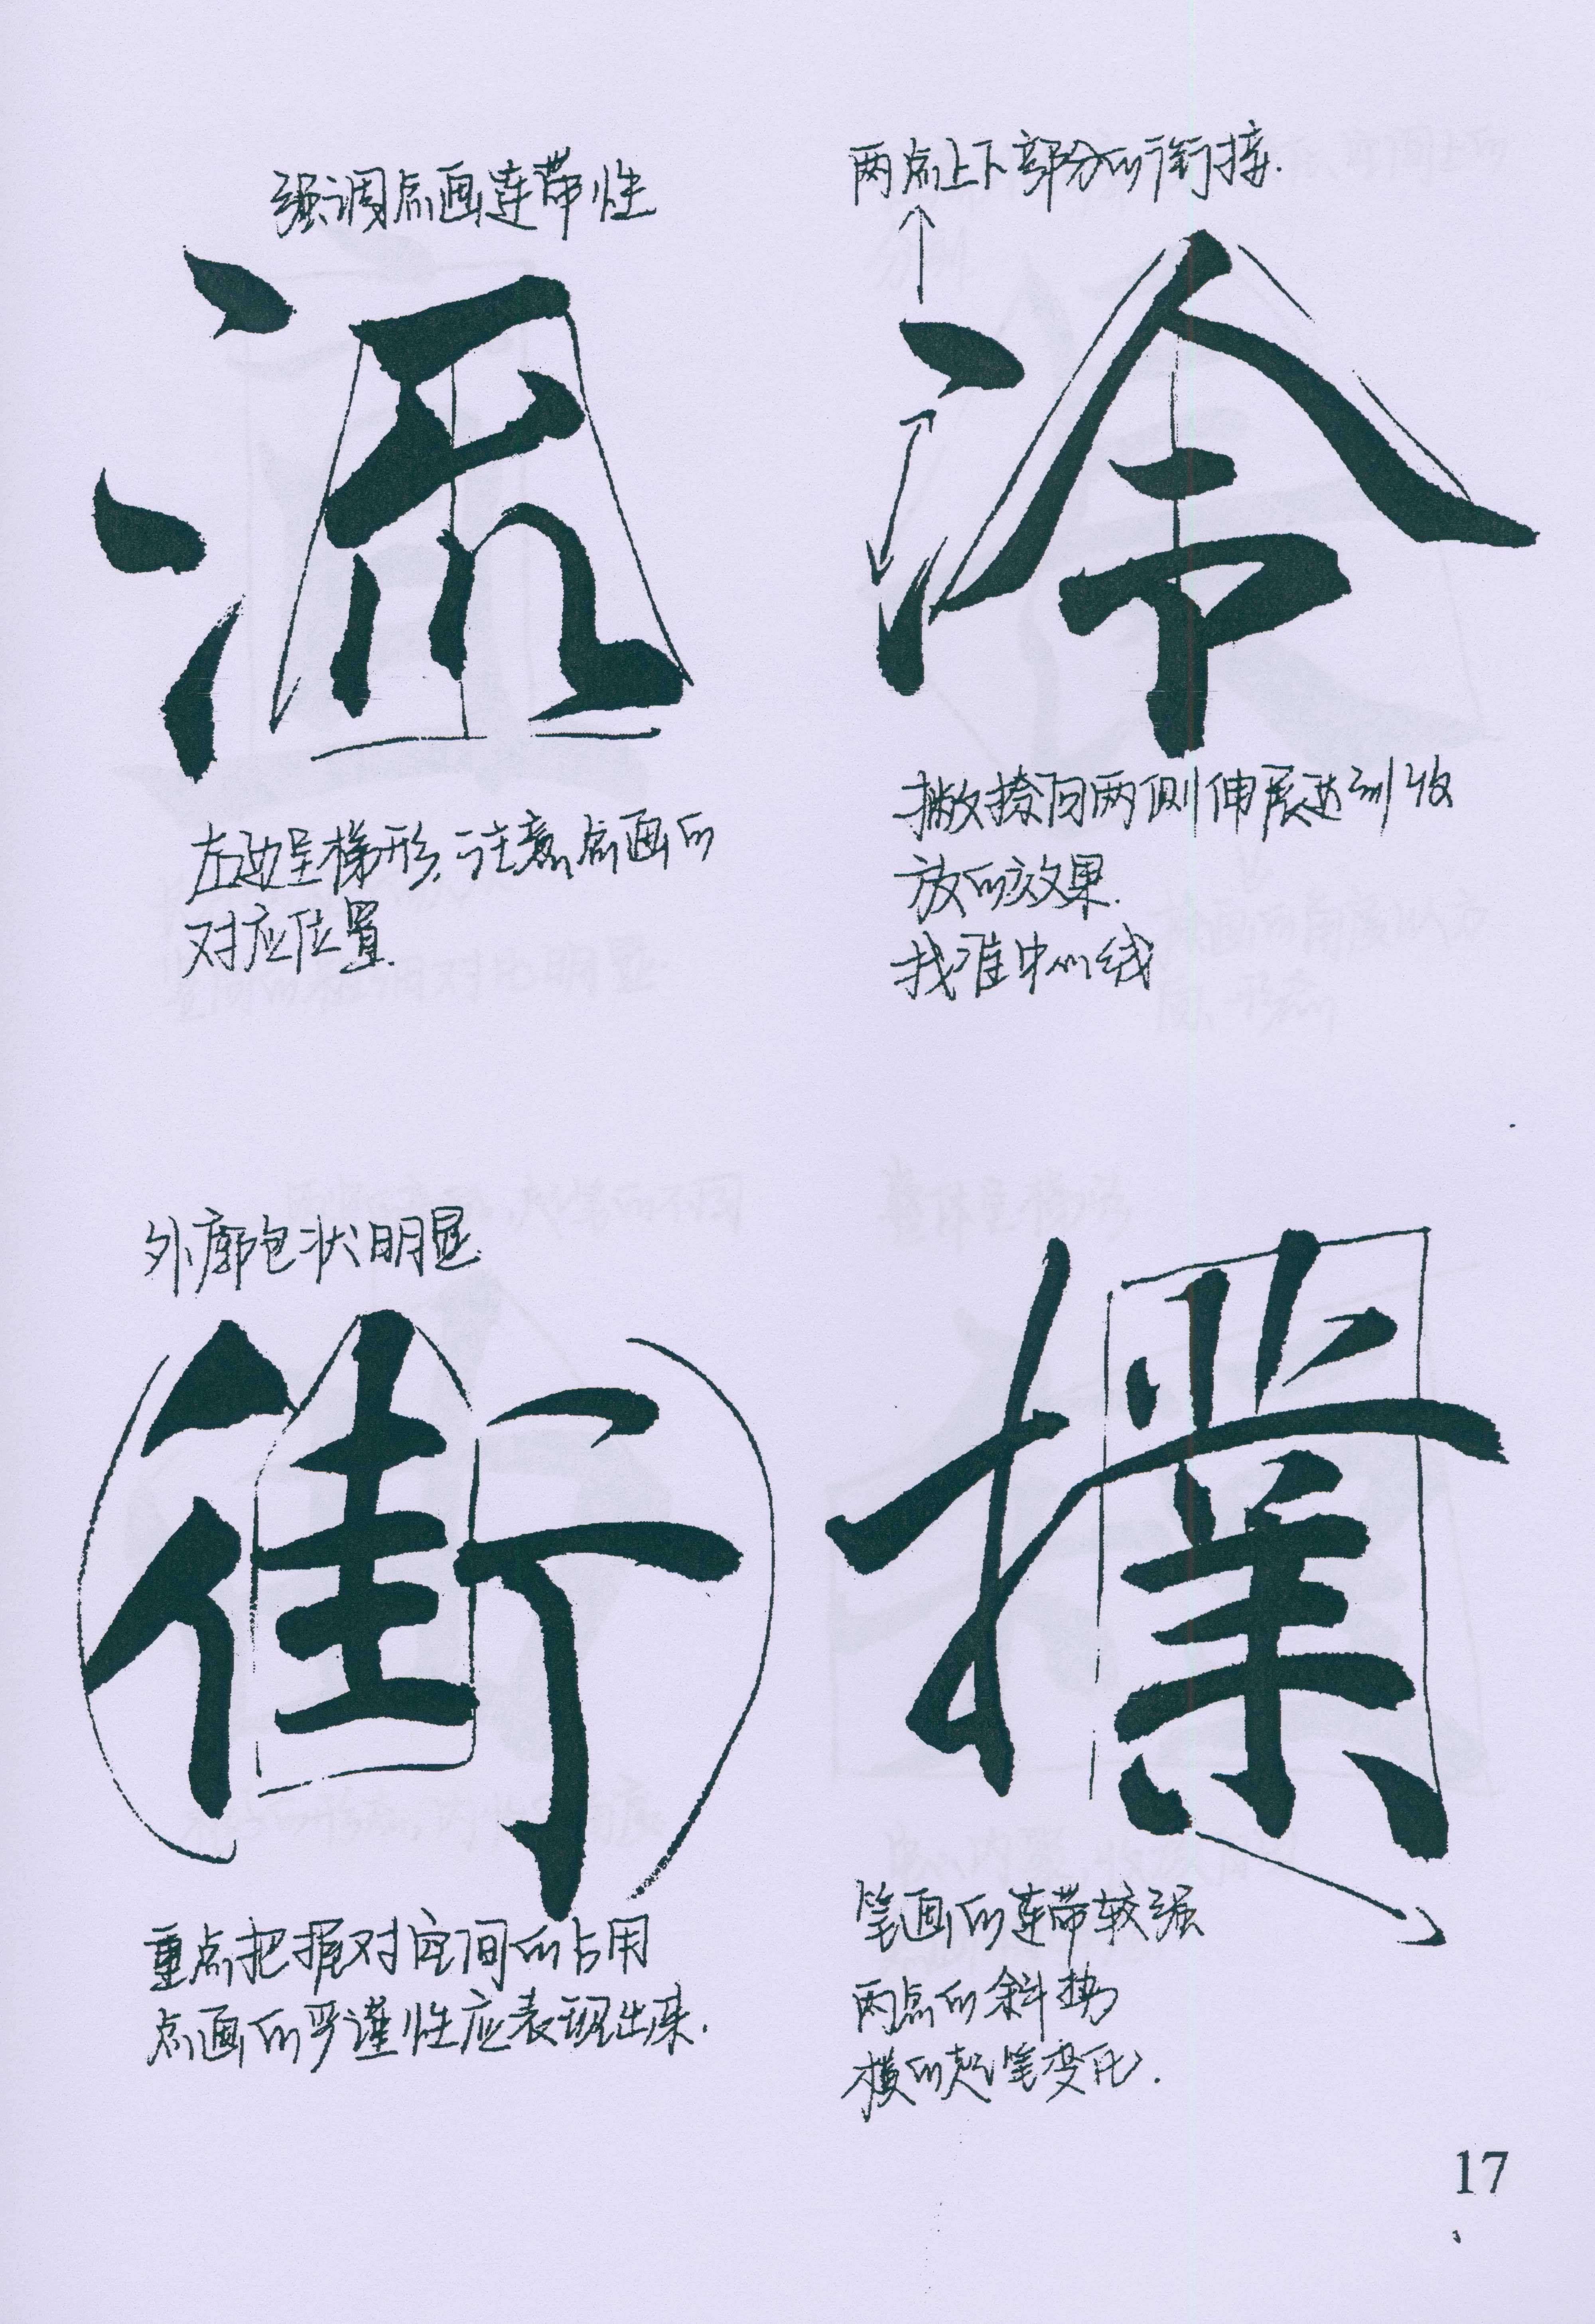 强调点画连带性
流
左边呈梯形,注意点画的
对应位置.
两点上下部分的衔接.
冷
撇捺向两侧伸展达到收
放的效果.
找准中心线
外廓包状明显.
街
重点把握对空间的占用
点画的严谨性应表现出来.
撲
笔画的连带较强
两点的斜势
横的起笔变化.
17